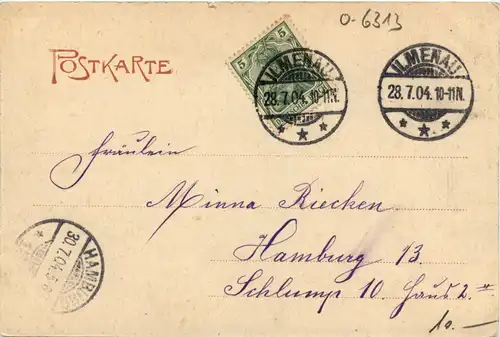 o-6313
POSTKARTE
5
ILMENAU
28.7.04.10-11N.
* * *
ILMENAU
28.7.04.10-11N.
* * *
Fräulein
Minna Riecken
Hamburg 13.
Schlump 10. Haus 2.
30.7.04.
HAMBURG
10.-